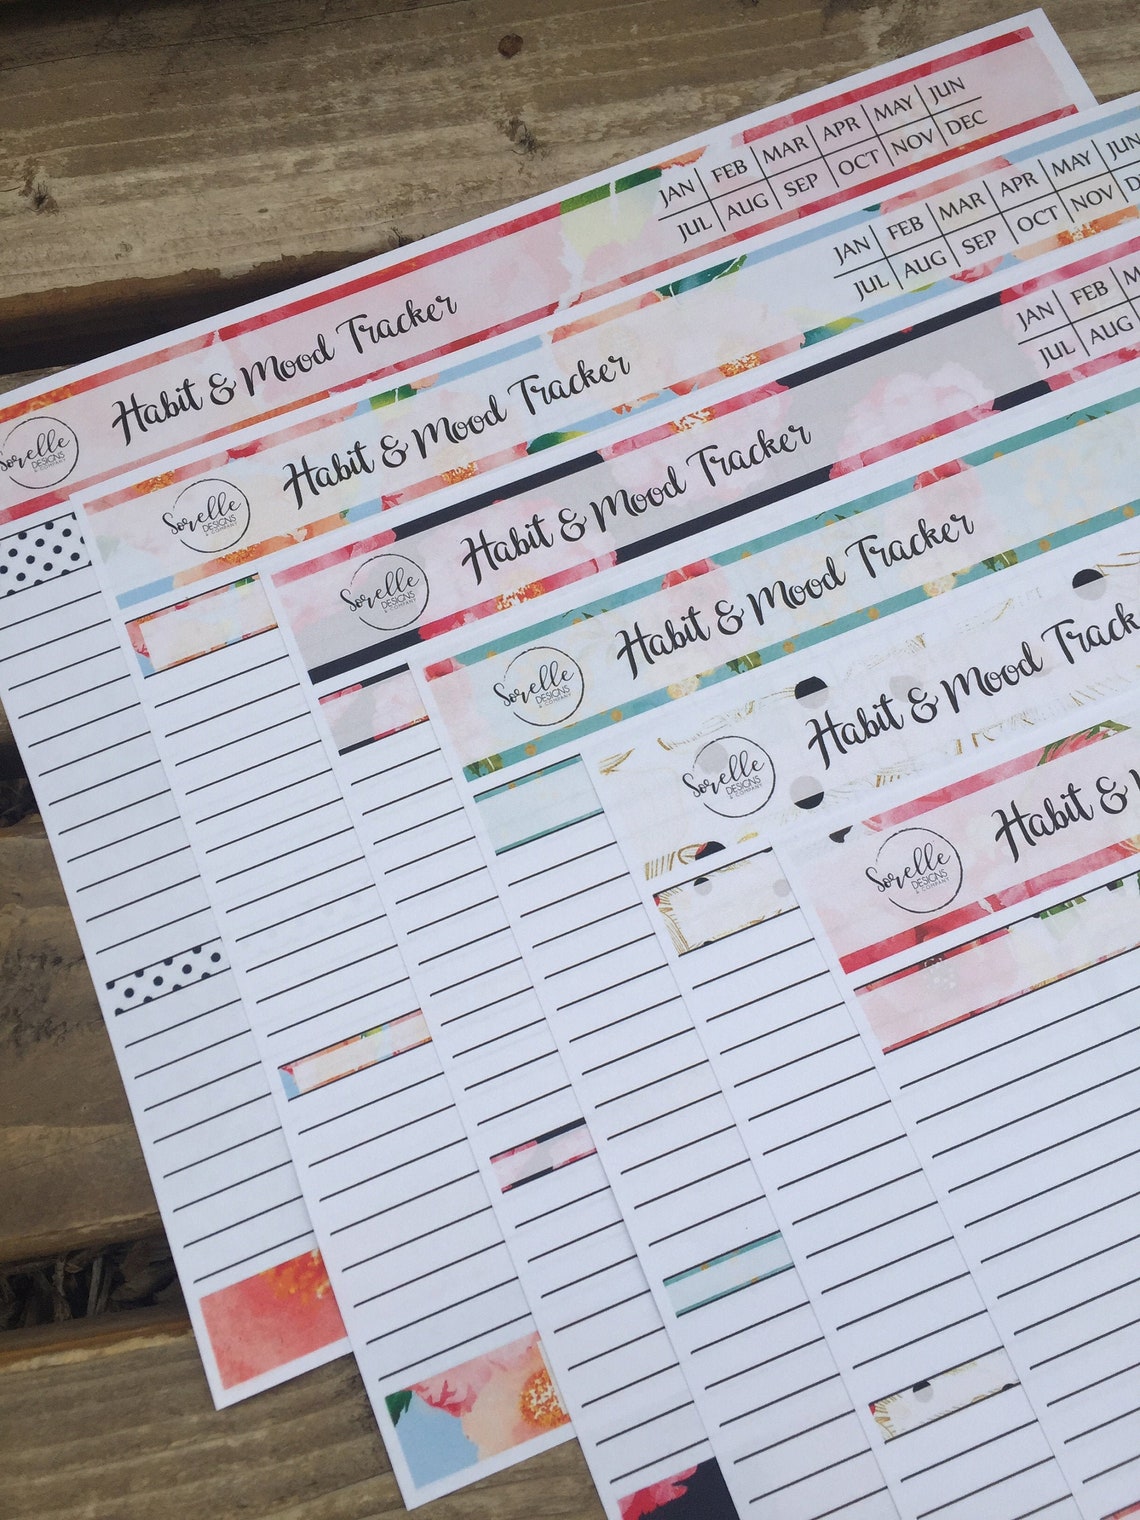 JAN FEB MAR APR MAY JUN
JUL AUG SEP OCT NOV DEC
Habit & Mood Tracker
Sorelle
DESIGNS
& COMPANY
JAN FEB MAR APR MAY JUN
JUL AUG SEP OCT NOV
Habit & Mood Tracker
Sorelle
DESIGNS
& COMPANY
JAN FEB
JUL AUG
Habit & Mood Tracker
Sorelle
DESIGNS
& COMPANY
Habit & Mood Tracker
Sorelle
DESIGNS
& COMPANY
Habit & Mood Track
Sorelle
DESIGNS
& COMPANY
Habit &
Sorelle
DESIGNS
& COMPANY